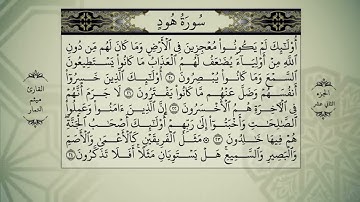 سُورَةُ هُودٍ
أُوْلَٰٓئِكَ لَمْ يَكُونُوا۟ مُعْجِزِينَ فِى ٱلْأَرْضِ وَمَا كَانَ لَهُم مِّن دُونِ
ٱللَّهِ مِنْ أَوْلِيَآءَ يُضَٰعَفُ لَهُمُ ٱلْعَذَابُ مَا كَانُوا۟ يَسْتَطِيعُونَ
ٱلسَّمْعَ وَمَا كَانُوا۟ يُبْصِرُونَ ٢٠ أُوْلَٰٓئِكَ ٱلَّذِينَ خَسِرُوٓا۟
أَنفُسَهُمْ وَضَلَّ عَنْهُم مَّا كَانُوا۟ يَفْتَرُونَ ٢١ لَا جَرَمَ أَنَّهُمْ
فِى ٱلْءَاخِرَةِ هُمُ ٱلْأَخْسَرُونَ ٢٢ إِنَّ ٱلَّذِينَ ءَامَنُوا۟ وَعَمِلُوا۟
ٱلصَّٰلِحَٰتِ وَأَخْبَتُوٓا۟ إِلَىٰ رَبِّهِمْ أُوْلَٰٓئِكَ أَصْحَٰبُ ٱلْجَنَّةِ
هُمْ فِيهَا خَٰلِدُونَ ٢٣ مَثَلُ ٱلْفَرِيقَيْنِ كَٱلْأَعْمَىٰ وَٱلْأَصَمِّ
وَٱلْبَصِيرِ وَٱلسَّمِيعِ هَلْ يَسْتَوِيَانِ مَثَلًا أَفَلَا تَذَكَّرُونَ ٢٤
الجزء
الثاني عشر
القارئ
ميثم
التمار